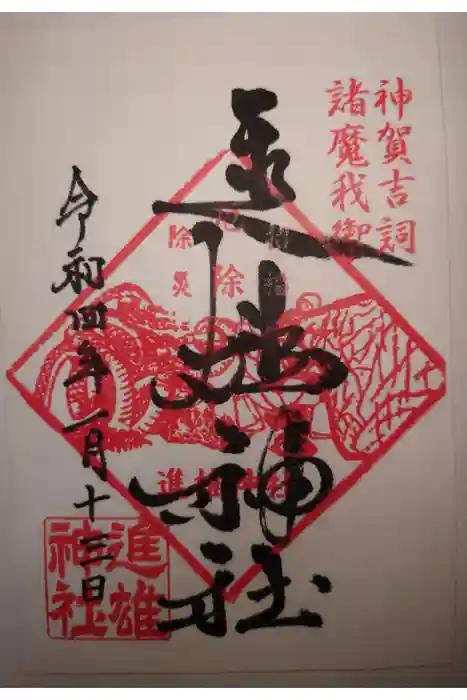 神賀吉詞
諸魔我御
招福
厄除
除災
進雄神社
進雄神社
令和四年一月十三日
進雄
神社